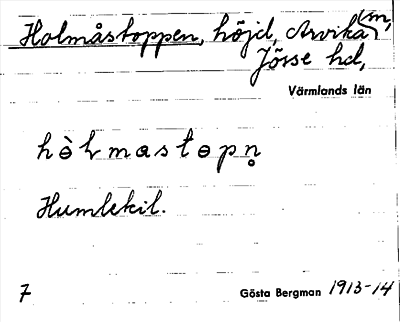 Holmåstoppen, höjd, Arvika lm,
Jösse hd,
Värmlands län
Humlekil.
7 Gösta Bergman 1913-14